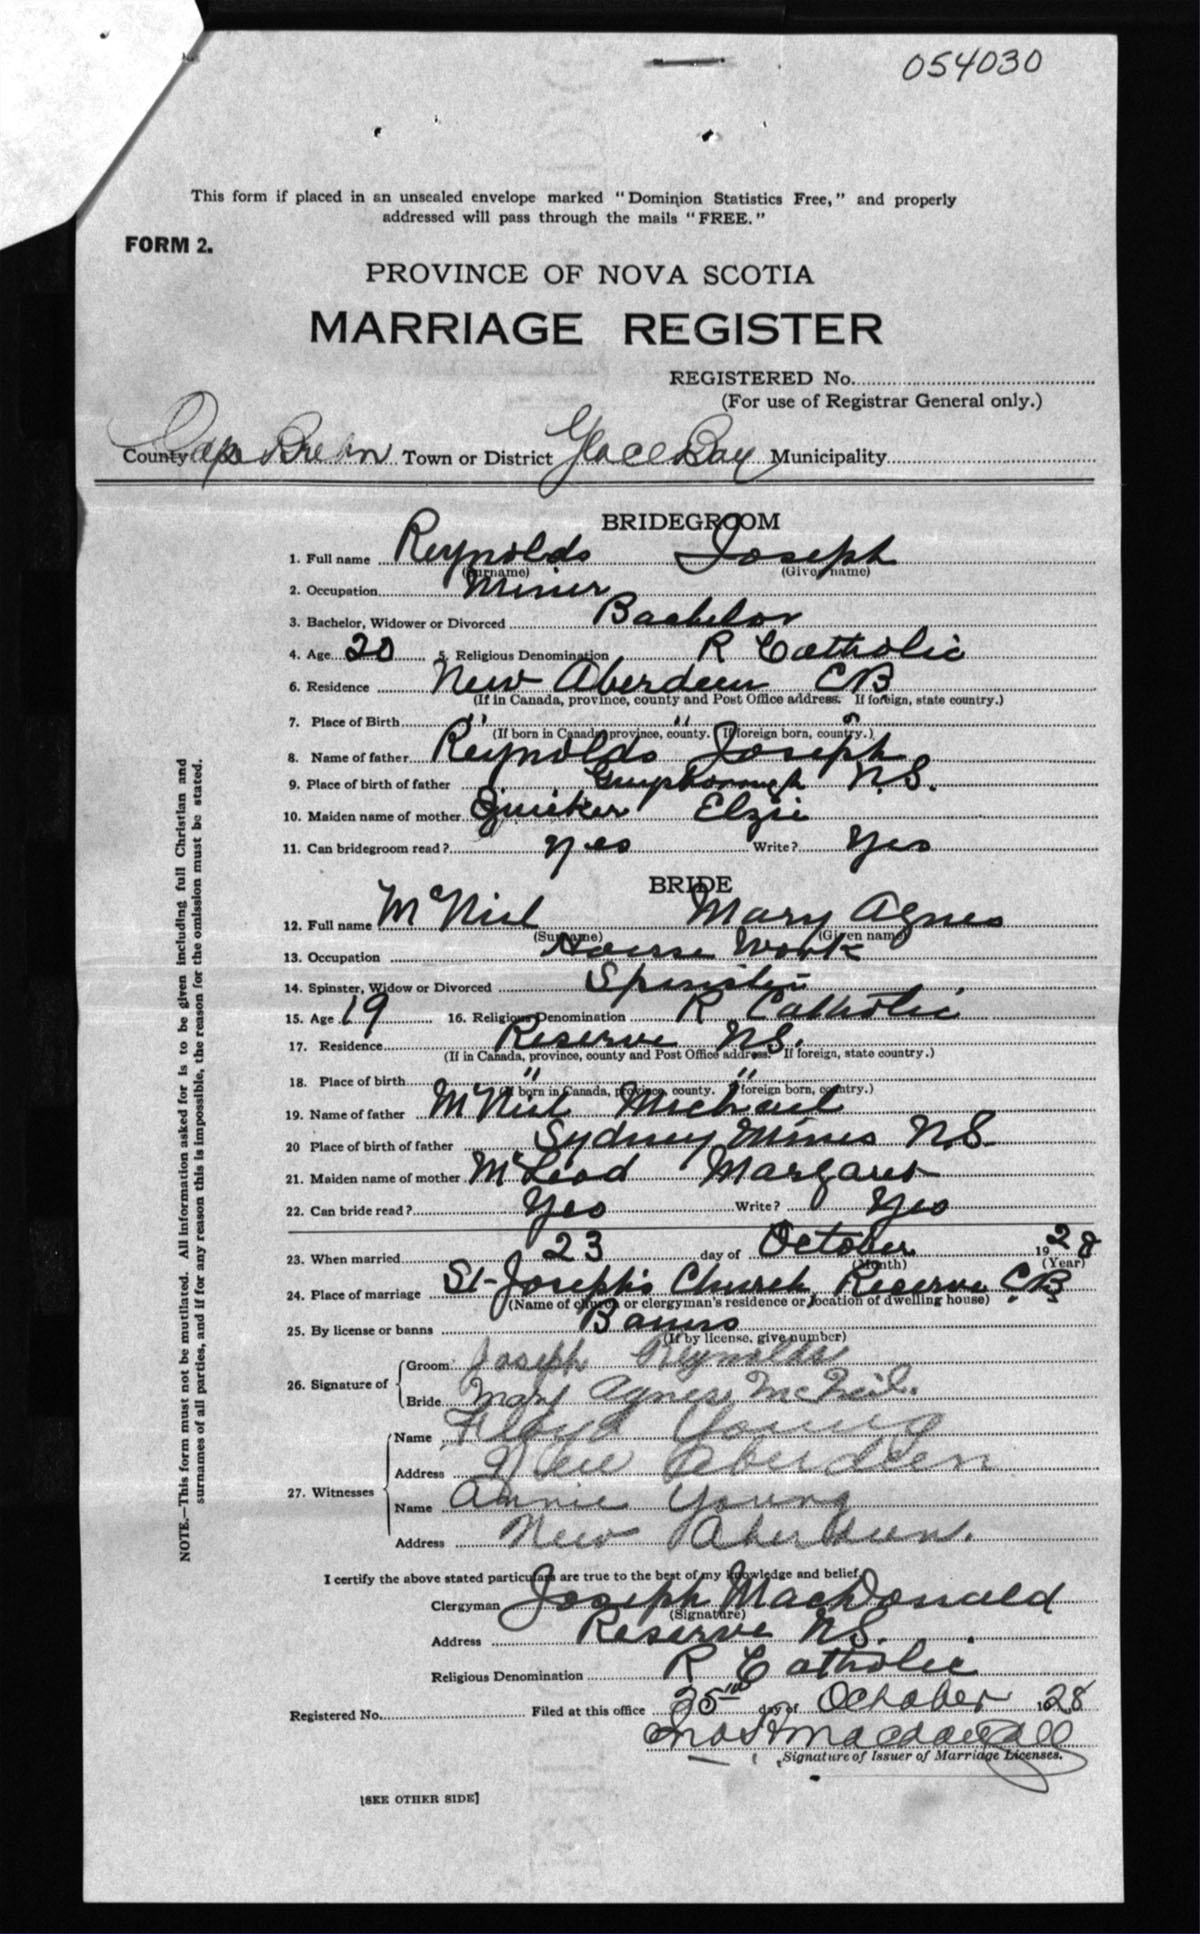 054030
This form if placed in an unsealed envelope marked "Dominion Statistics Free," and properly
addressed will pass through the mails "FREE."
FORM 2.
PROVINCE OF NOVA SCOTIA
MARRIAGE REGISTER
REGISTERED No.
(For use of Registrar General only.)
County Cape Breton Town or District Glace Bay Municipality
BRIDEGROOM
1. Full name Reynolds Joseph
(Surname) (Given name)
2. Occupation Miner
3. Bachelor, Widower or Divorced Bachelor
4. Age 20 5. Religious Denomination R Catholic
6. Residence New Aberdeen CB
(If in Canada, province, county and Post Office address. If foreign, state country.)
7. Place of Birth " " "
(If born in Canada, province, county. If foreign born, country.)
8. Name of father Reynolds Joseph
9. Place of birth of father Guysborough N.S.
10. Maiden name of mother Elzie
11. Can bridegroom read? Yes Write? Yes
BRIDE
12. Full name McNiel Mary Agnes
(Surname) (Given name)
13. Occupation House Work
14. Spinster, Widow or Divorced Spinster
15. Age 19 16. Religious Denomination R Catholic
17. Residence Reserve NS.
(If in Canada, province, county and Post Office address. If foreign, state country.)
18. Place of birth " "
(If born in Canada, province, county. If foreign born, country.)
19. Name of father McNiel Michael
20 Place of birth of father Sydney Mines N.S.
21. Maiden name of mother McLeod Margaret
22. Can bride read? Yes Write? Yes
23. When married 23 day of October 1928
(Month) (Year)
24. Place of marriage St-Joseph's Church Reserve C.B.
(Name of church or clergyman's residence or location of dwelling house)
25. By license or banns Banns
(If by license, give number)
26. Signature of Groom Joseph Reynolds
Bride Mary Agnes McNeil.
27. Witnesses Name Floyd Young
Address New Aberdeen
Name Annie Young
Address New Aberdeen.
I certify the above stated particulars are true to the best of my knowledge and belief.
Clergyman Joseph MacDonald
(Signature)
Address Reserve NS.
Religious Denomination R Catholic
Registered No. Filed at this office 25th day of October 1928
Signature of Issuer of Marriage Licenses.
[SEE OTHER SIDE]
NOTE.—This form must not be mutilated. All information asked for is to be given including full Christian and
surnames of all parties, and if for any reason this is impossible, the reason for the omission must be stated.